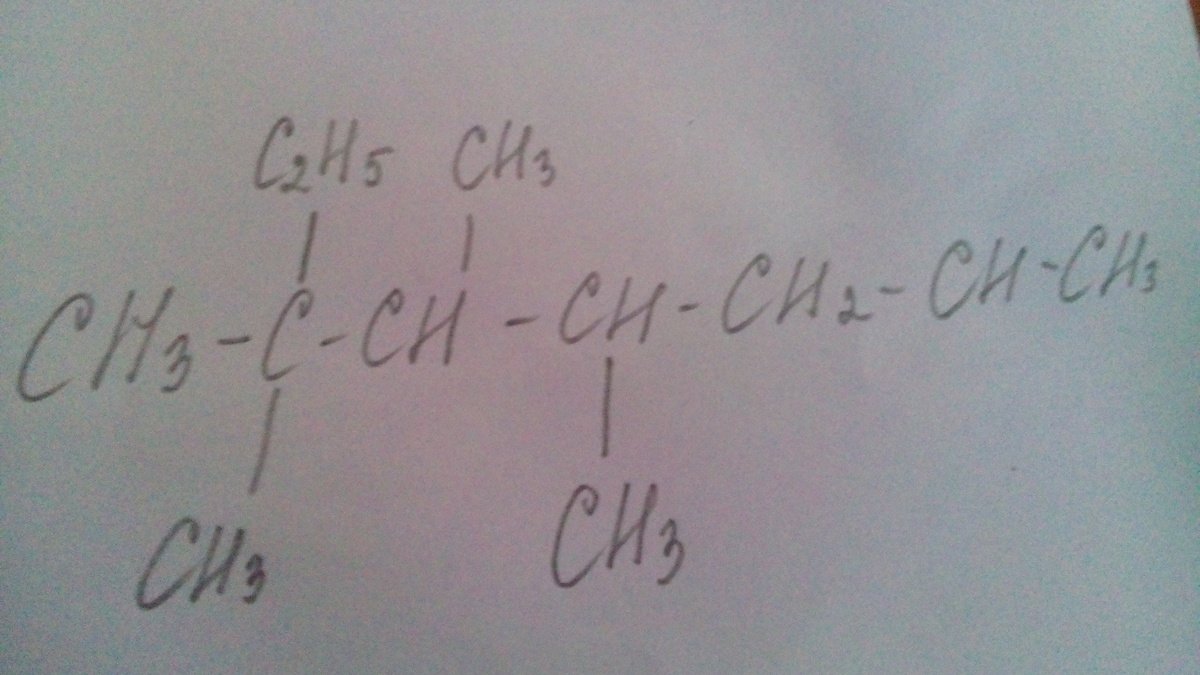 C2H5 CH3
CH3-C-CH-CH-CH2-CH-CH3
CH3 CH3